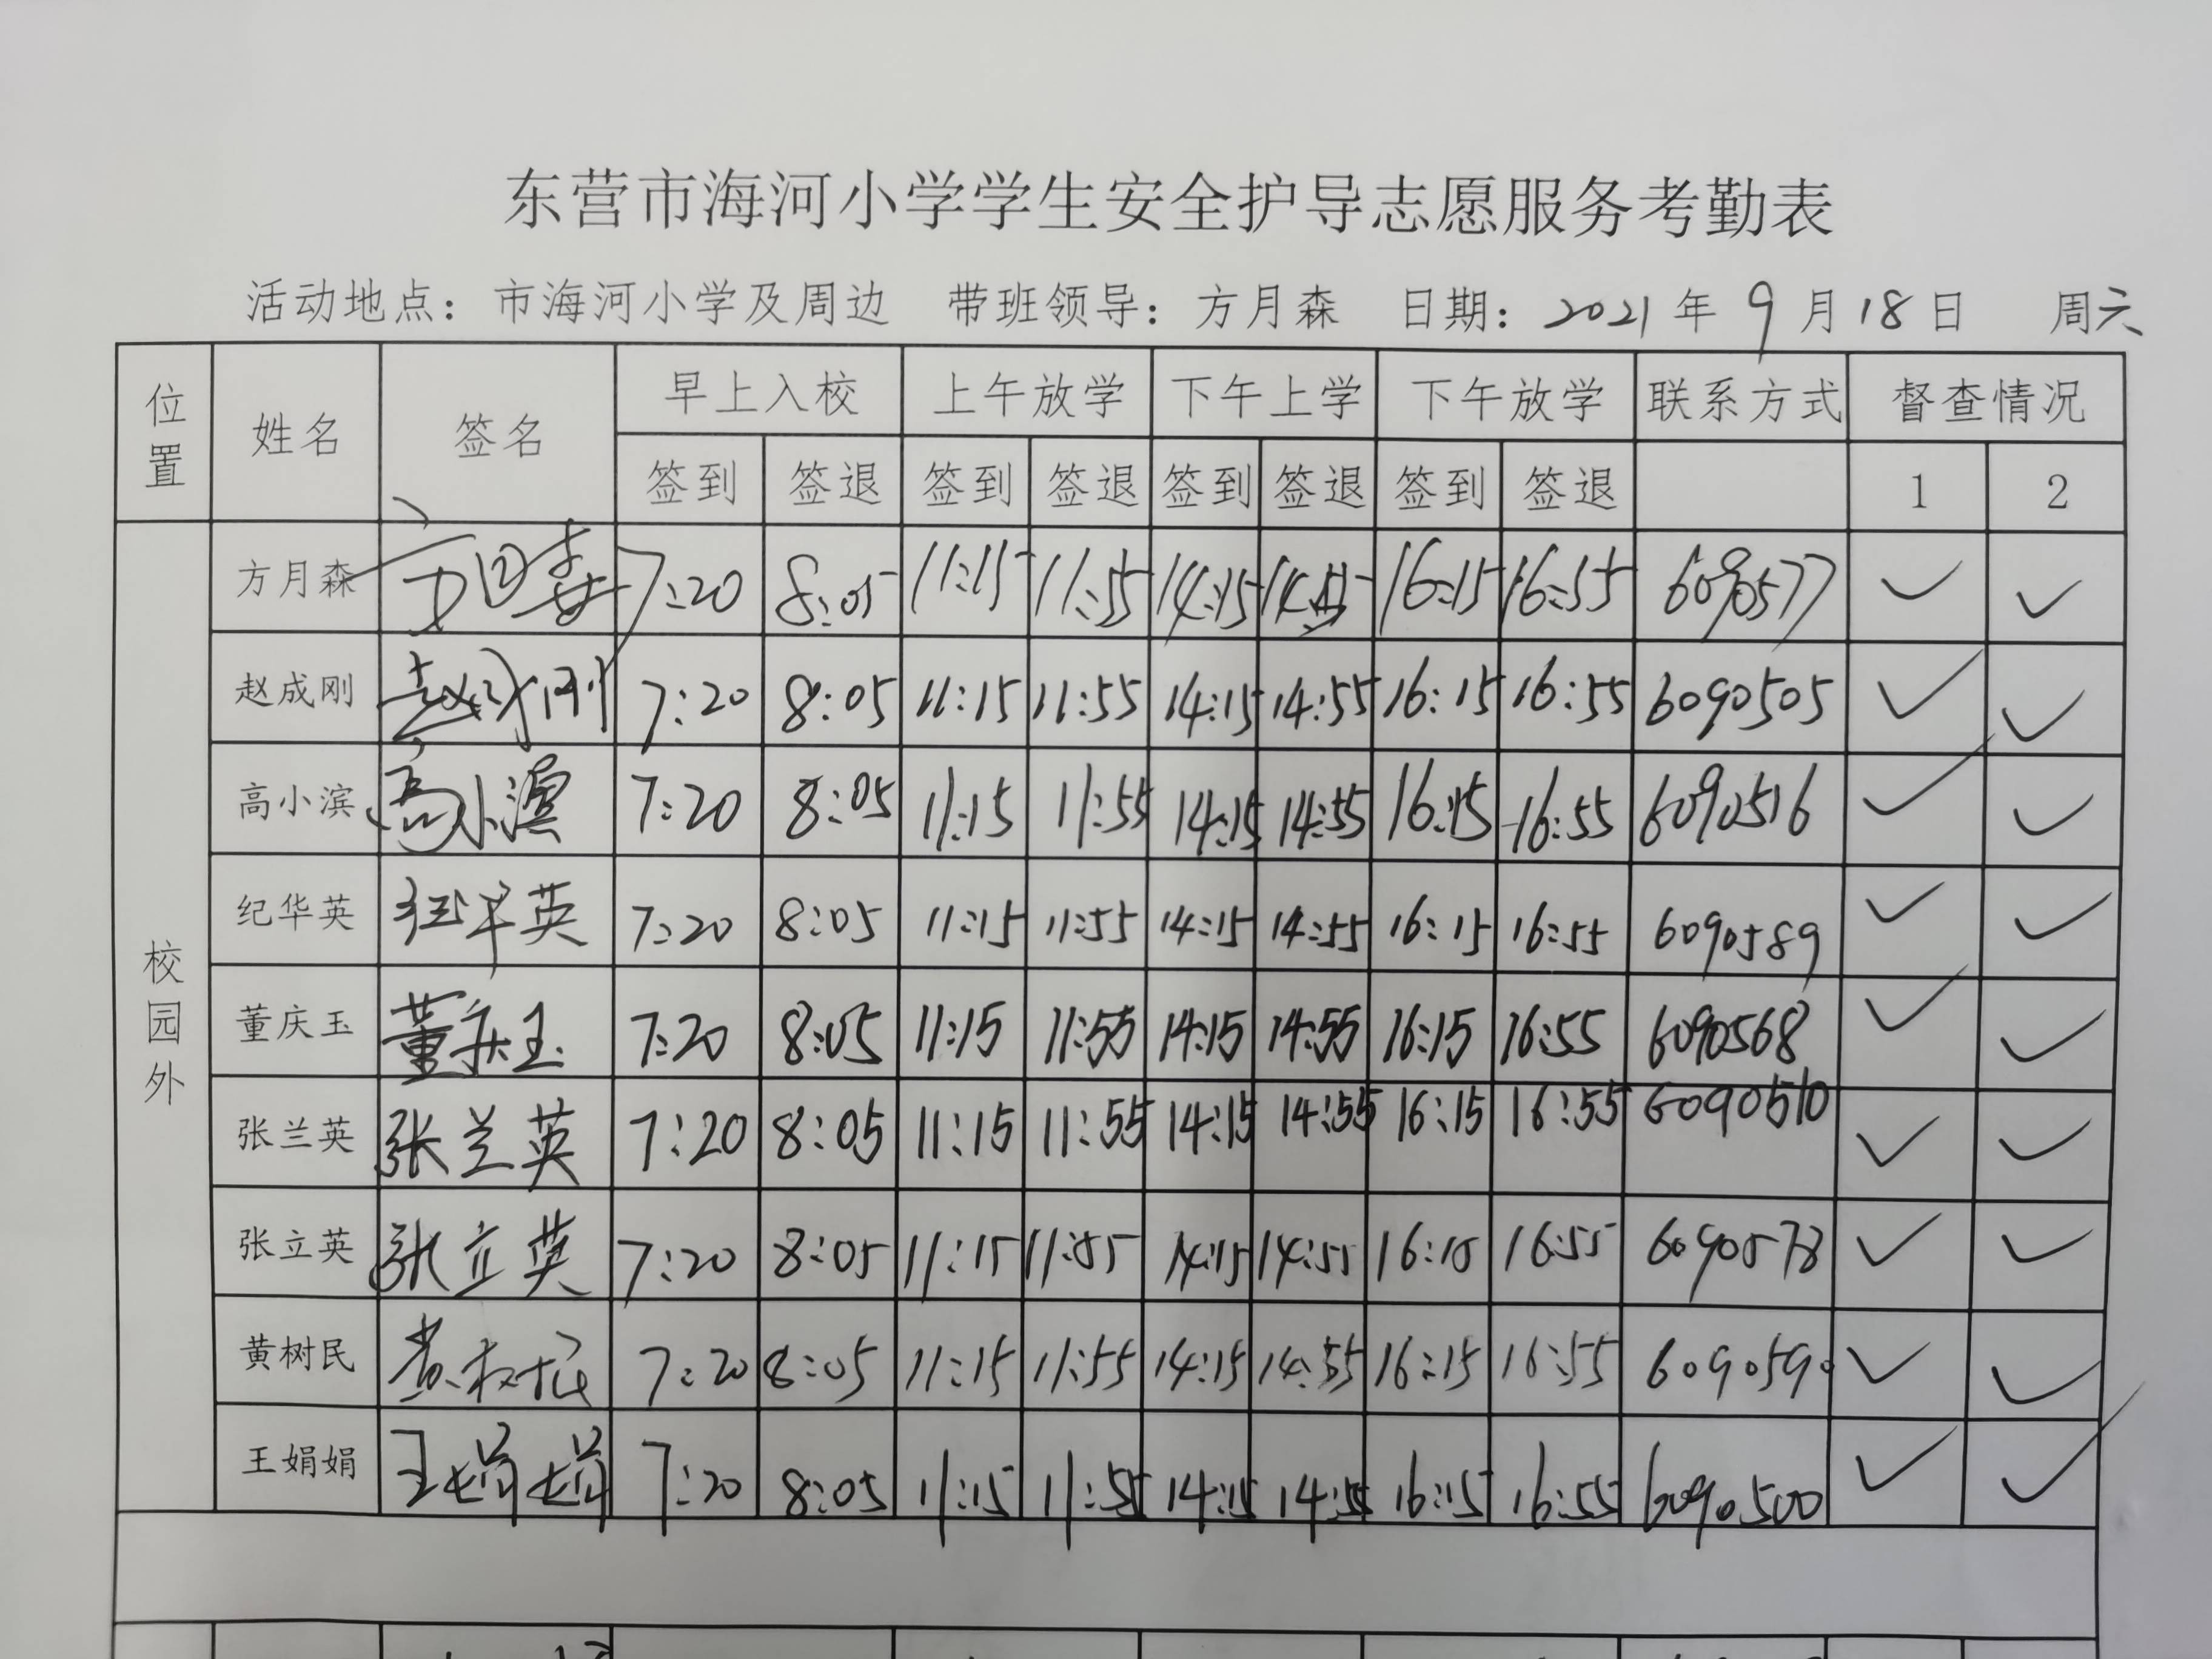 东营市海河小学学生安全护导志愿服务考勤表
活动地点：市海河小学及周边 带班领导：方月森 日期：2021年9月18日 周六
位置 姓名 签名 早上入校 上午放学 下午上学 下午放学 联系方式 督查情况
签到 签退 签到 签退 签到 签退 签到 签退 1 2
校园外
方月森 方月森 7:20 8:05 11:15 11:55 14:15 14:55 16:15 16:55 6090577 ✓ ✓
赵成刚 赵成刚 7:20 8:05 11:15 11:55 14:15 14:55 16:15 16:55 6090505 ✓ ✓
高小滨 高小滨 7:20 8:05 11:15 11:55 14:15 14:55 16:15 16:55 6090516 ✓ ✓
纪华英 纪华英 7:20 8:05 11:15 11:55 14:15 14:55 16:15 16:55 6090589 ✓ ✓
董庆玉 董庆玉 7:20 8:05 11:15 11:55 14:15 14:55 16:15 16:55 6090568 ✓ ✓
张兰英 张兰英 7:20 8:05 11:15 11:55 14:15 14:55 16:15 16:55 6090510 ✓ ✓
张立英 张立英 7:20 8:05 11:15 11:55 14:15 14:55 16:15 16:55 6090578 ✓ ✓
黄树民 黄树民 7:20 8:05 11:15 11:55 14:15 14:55 16:15 16:55 6090590 ✓ ✓
王娟娟 王娟娟 7:20 8:05 11:15 11:55 14:15 14:55 16:15 16:55 6090500 ✓ ✓